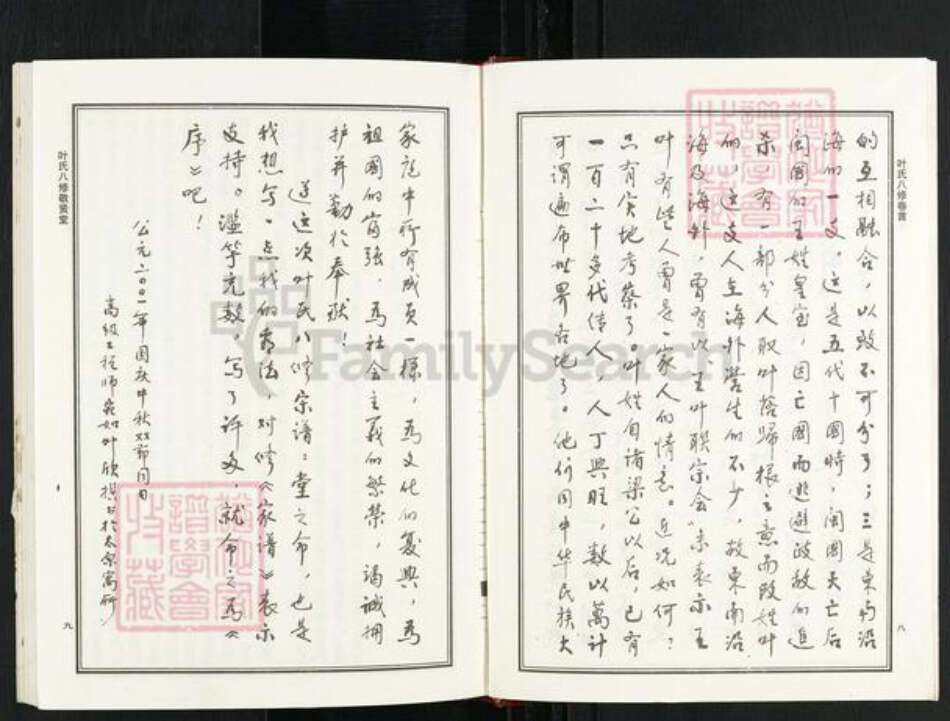 叶氏八修卷首
的互相融合，以致不可分了；三是东南沿
海的一支。这是五代十国时，闽国灭亡后
闽国的王姓皇室，因亡国而逃避政敌的追
杀，有一部分人取叶落歸根之意而改姓叶
的，这支人在海外营生的不少，故東南沿
海及海外，曾有以“王叶联宗会”来表示王
叶有些人曾是一家人的情意。近况如何？
只有实地考察了。叶姓自诸梁公以后，已有
一百二十多代传人，人丁興旺，数以萬计
可谓遍布世界各地了。他们同中华民族大
八
家庭中所有成員一樣，為文化的复興，為
祖國的富强，為社会主義的繁荣，竭诚拥
护并勤於奉献！
这次叶氏八修宗谱：堂之命，也是
我想写一点我的看法，对修《家谱》表示
支持。滥竽充数，写了许多，就命之為《
序》吧！
公元二00一年国庆中秋双节同日
高级工程师 叶欣 於太原寓所
叶氏八修敬贤堂
九
譜學會
收藏
譜學會
收藏
FamilySearch